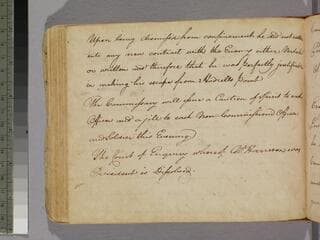 Upon being dismissed from confinement he did not enter
into any new contract with the Enemy either Verbal
or written and therefore that he was perfectly justified
in making his escape from Hadrells Point
The Commissary will issue a Canteen of Spirits to each
Officer and a jill to each Non Commissioned Officer
and Soldier this Evening
The Court of Enquiry whereof Col. Harrison was
President is Dissolved.